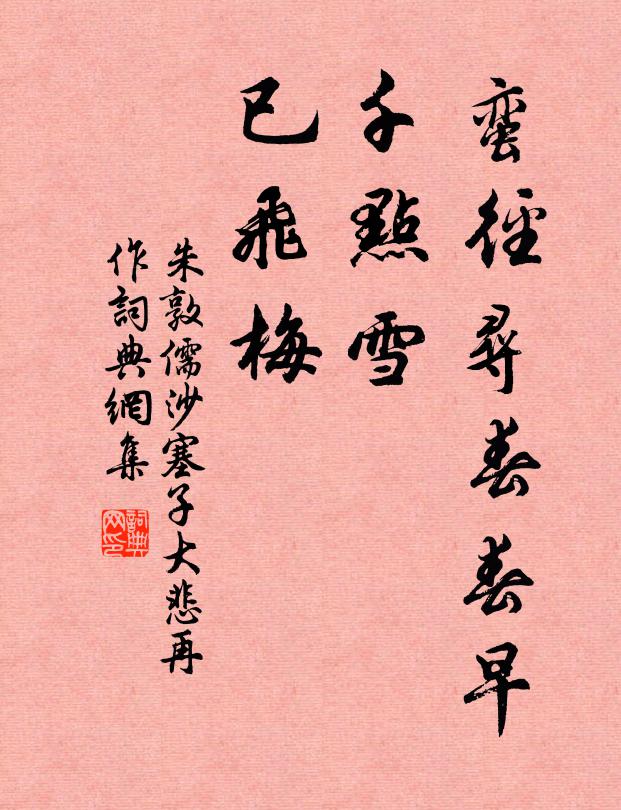 蛮徑尋春春早
千點雪
已飛梅
朱敦儒沙塞子大悲再
作詞典網集
詞典
网印